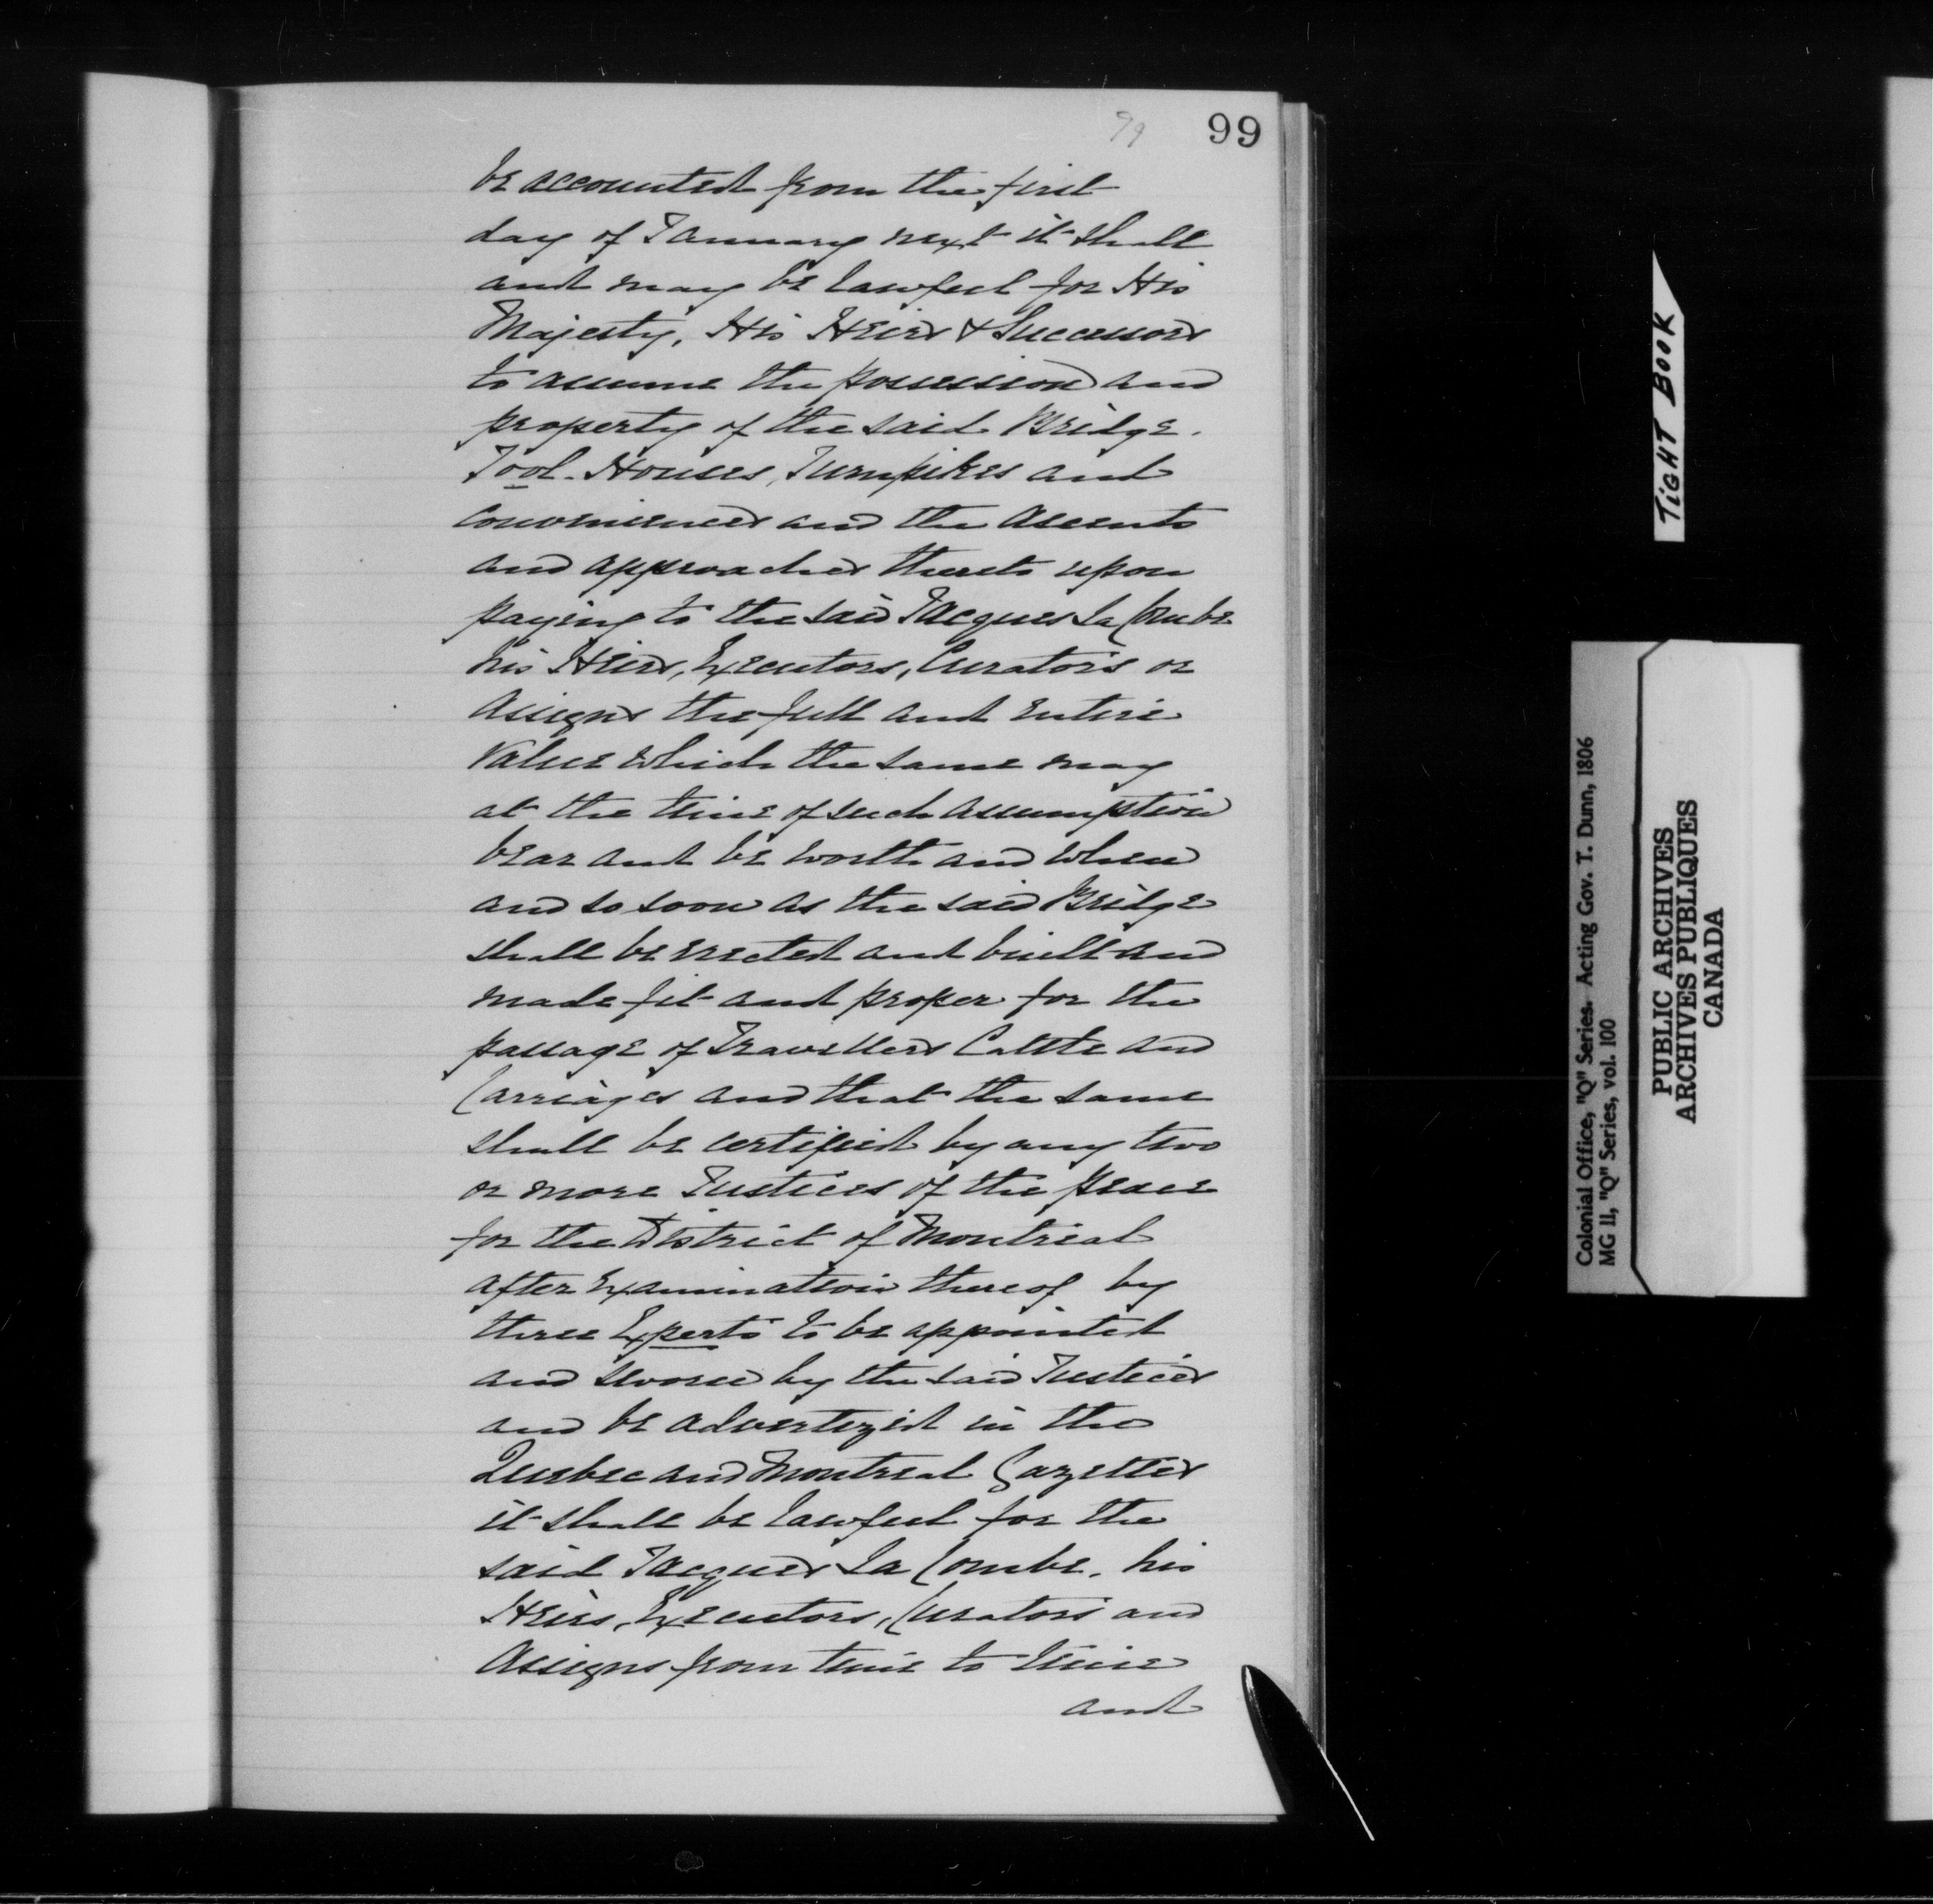 99 99
be accounted from the first
day of January next it shall
and may be lawful for His
Majesty, His Heirs & Successors
to assume the possession and
property of the said Bridge.
Tool-Houses, Turnpikes and
conveniences and the Ascents
and approaches thereto upon
paying to the said Jacques La Combe
his Heirs, Executors, Curators or
Assigns the full and entire
Value which the same may
at the time of such assumption
bear and be worth and when
and so soon as the said Bridge
shall be erected and built and
made fit and proper for the
passage of Travellers Cattle and
Carriages and that the same
shall be certified by any two
or more Justices of the peace
for the District of Montreal
after Examination thereof by
three Experts to be appointed
and sworn by the said Justices
and be advertized in the
Quebec and Montreal Gazettes
it shall be lawful for the
said Jacques La Combe. his
Heirs, Executors, Curators and
Assigns from time to time
and
TiGHT BOOK
Colonial Office, "Q" Series. Acting Gov. T. Dunn, 1806
MG 11, "Q" Series, vol. 100
PUBLIC ARCHIVES
ARCHIVES PUBLIQUES
CANADA